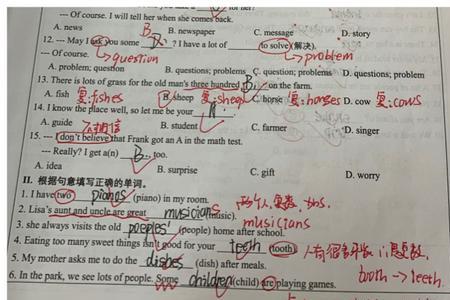 for her?
--- Of course. I will tell her when she comes back.
A. news B. newspaper C. message D. story
12. --- May I ask you some B ? I have a lot of to solve(解决).
--- Of course. question problem
A. problem; question B. questions; problems C. question; problems D. questions; problem
13. There is lots of grass for the old man's three hundred B on the farm.
A. fish 复:fishes B. sheep 复:sheep C. horse 复:horses D. cow 复:cows
14. I know the place well, so let me be your A.
A. guide B. student C. farmer D. singer
不相信
15. --- I don't believe that Frank got an A in the math test.
--- Really? I get a(n) B, too.
A. idea B. surprise C. gift D. worry
II. 根据句意填写正确的单词。
1. I have two pianos (piano) in my room.
2. Lisa's aunt and uncle are great musicians (music). 两个人,复数,加s.
musicians
3. she always visits the old peoples' (people) home after school.
4. Eating too many sweet things isn't good for your teeth (tooth).
5. My mother asks me to do the dishes (dish) after meals. tooth → teeth.
6. In the park, we see lots of people. Some children (child) are playing games.